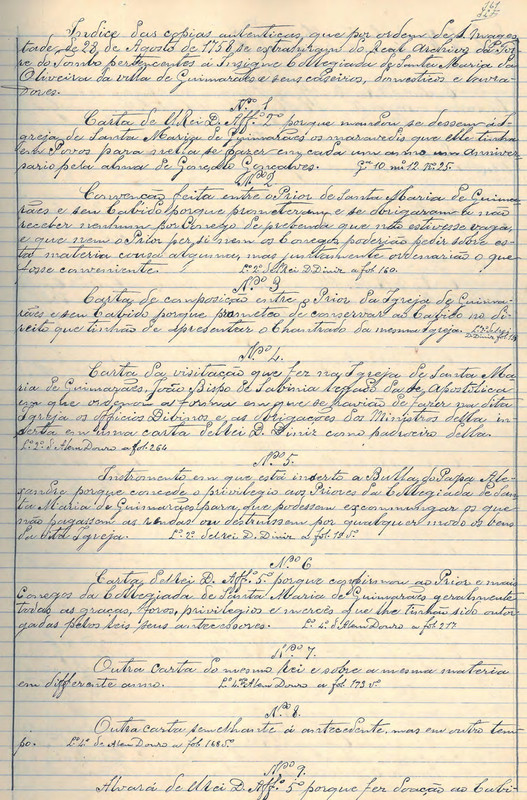 Indice das copias autenticas, que por ordem de S. Mages-
tade, de 23, de Agosto de 1756 se extrahiram do Real Archivo da Tor-
re do Tombo pertencentes á Insigne Collegiada de Santa Maria da
Oliveira da villa de Guimarães e seus caseiros, domesticos e lavra-
dores.
Nº 1
Carta de ElRei D. Affº porque mandou se dessem á I-
greja de Santa Maria de Guimarães os maravelis que elle tinha
em Povos para nella se fazer em cada um anno um anniver-
sario pela alma de Gonçalo Gonçalves. Gª 10. mº 12. nº 25.
Nº 2
Convenção feita entre o Prior de Santa Maria de Guima-
rães e seu Cabido porque prometeram e se obrigaram a não
receber nenhum por Conego de prebenda que não estivesse vaga,
e que nem o Prior per si nem os Conegos poderião pedir sobre es-
ta materia cousa alguma, mas juntamente ordenarião o que
fosse conveniente. Lº 2º d'ElRei D. Diniz a fol. 160.
Nº 3
Carta de composição entre o Prior da Igreja de Guima-
rães e seu Cabido porque prometeo de conservar ao Cabido no di-
reito que tinhão de apresentar o Chantrado da mesma Igreja. Lº 2º d'ElRei
D. Diniz fol.
Nº 4.
Carta da visitação que fez na Igreja de Santa Ma-
ria de Guimarães, João Bispo de Sabinia legado da Sé Apostolica
em que ordenou a forma em que se havião de fazer na dita
Igreja os Officios Dibinos e as obrigações dos Ministros della in-
serta em uma carta delRei D. Diniz como padroeiro della.
Lº 2º d'Alem Douro a fol. 264
Nº 5.
Instromento em que está inserto a Bulla do Papa Ale-
xandre porque concede o privilegio aos Priores da Collegiada de San-
ta Maria de Guimarães para que podessem excommungar os que
não pagassem as rendas ou destruissem por qualquer modo os bens
da dita Igreja. Lº 2º delRei D. Diniz a fol. 19 vº
Nº 6
Carta delRei D. Affº 5º porque confirmou ao Prior e mais
Conegos da Collegiada de Santa Maria de Guimarães geralmente
todas as graças, foros, privilegios e mercês que lhe tinhão sido outor-
gadas pelos Reis seus antecessores. Lº 4º d'Alem Douro a fol. 217
Nº 7.
Outra carta do mesmo Rei e sobre a mesma materia
em differente anno. Lº 4º d'Alem Douro a fol. 173 vº
Nº 8.
Outra carta semelhante á antecedente, mas em outro tem-
po. Lº 4º de Alem Douro a fol. 168 vº
Nº 9.
Alvará de ElRei D. Affº 5º porque fez doação ao Cabi-